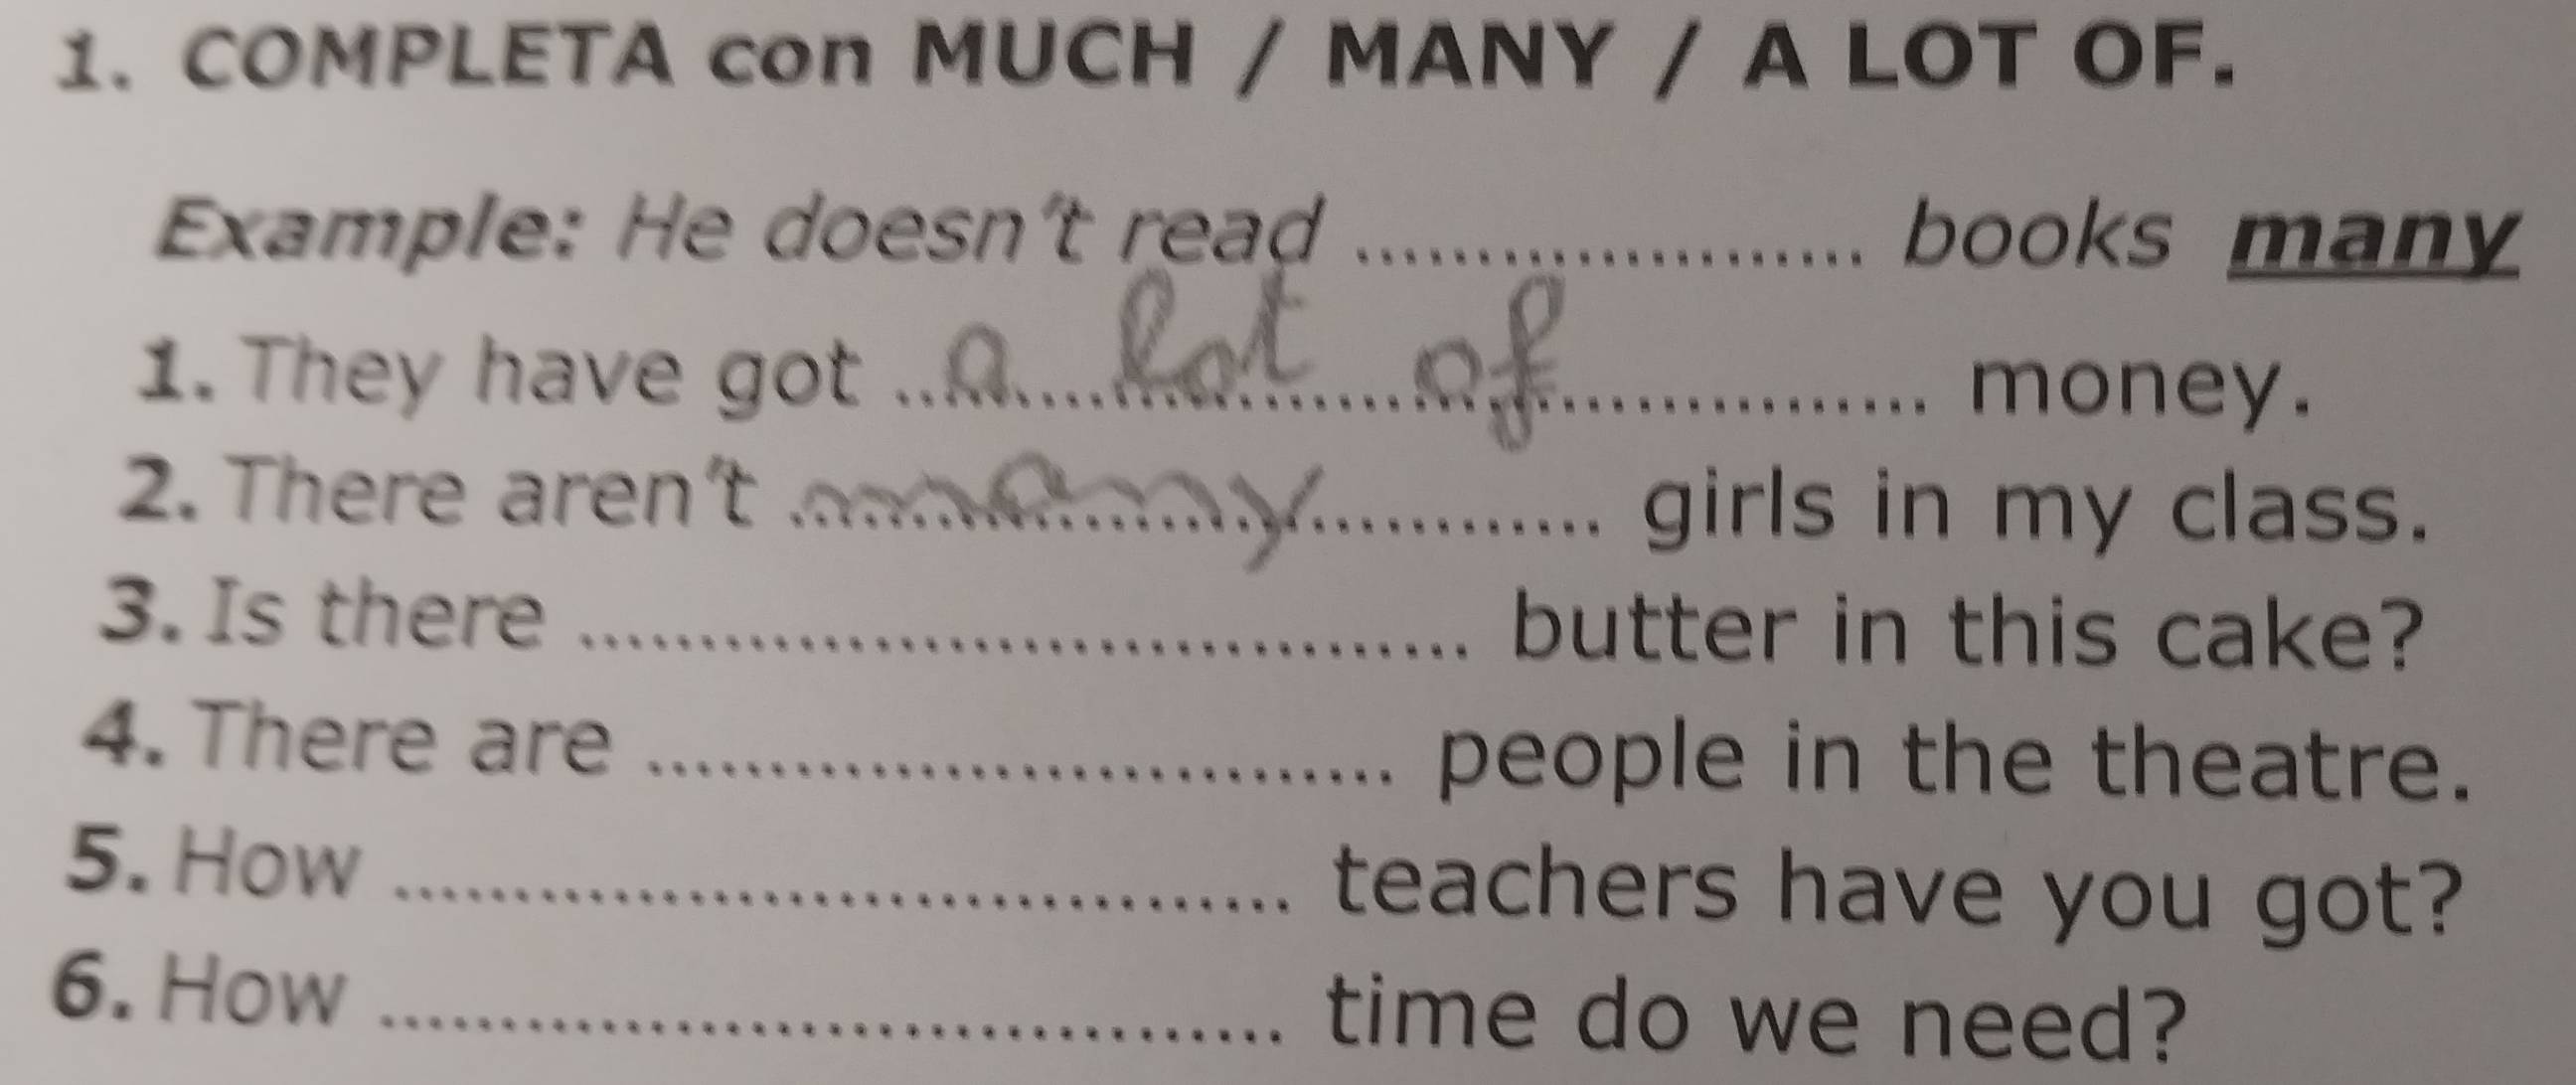 1. COMPLETA con MUCH / MANY / A LOT OF.
Example: He doesn't read ..................... books many
1. They have got a lot of money.
2. There aren't many girls in my class.
3. Is there .................................... butter in this cake?
4. There are .............................. people in the theatre.
5. How .................................... teachers have you got?
6. How .................................... time do we need?